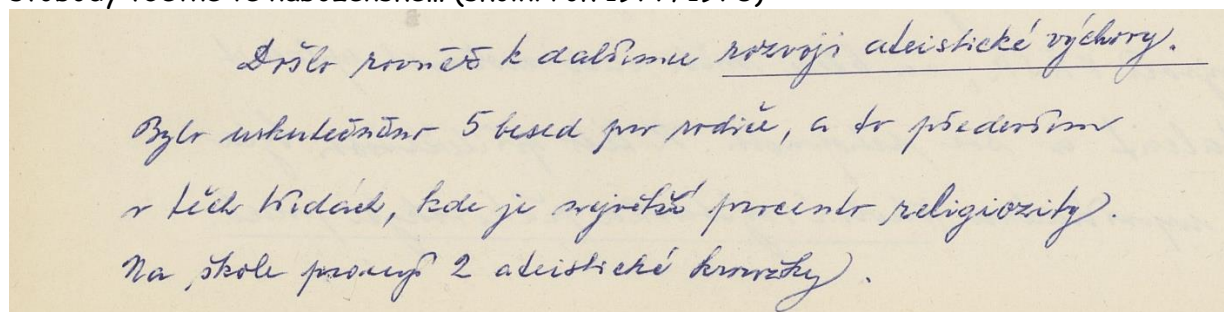 Došlo rovněž k dalšímu rozvoji ateistické výchovy.
Bylo uskutečněno 5 besed pro rodiče, a to především
v těch třídách, kde je největší procento religiozity.
Na škole pracují 2 ateistické kroužky.